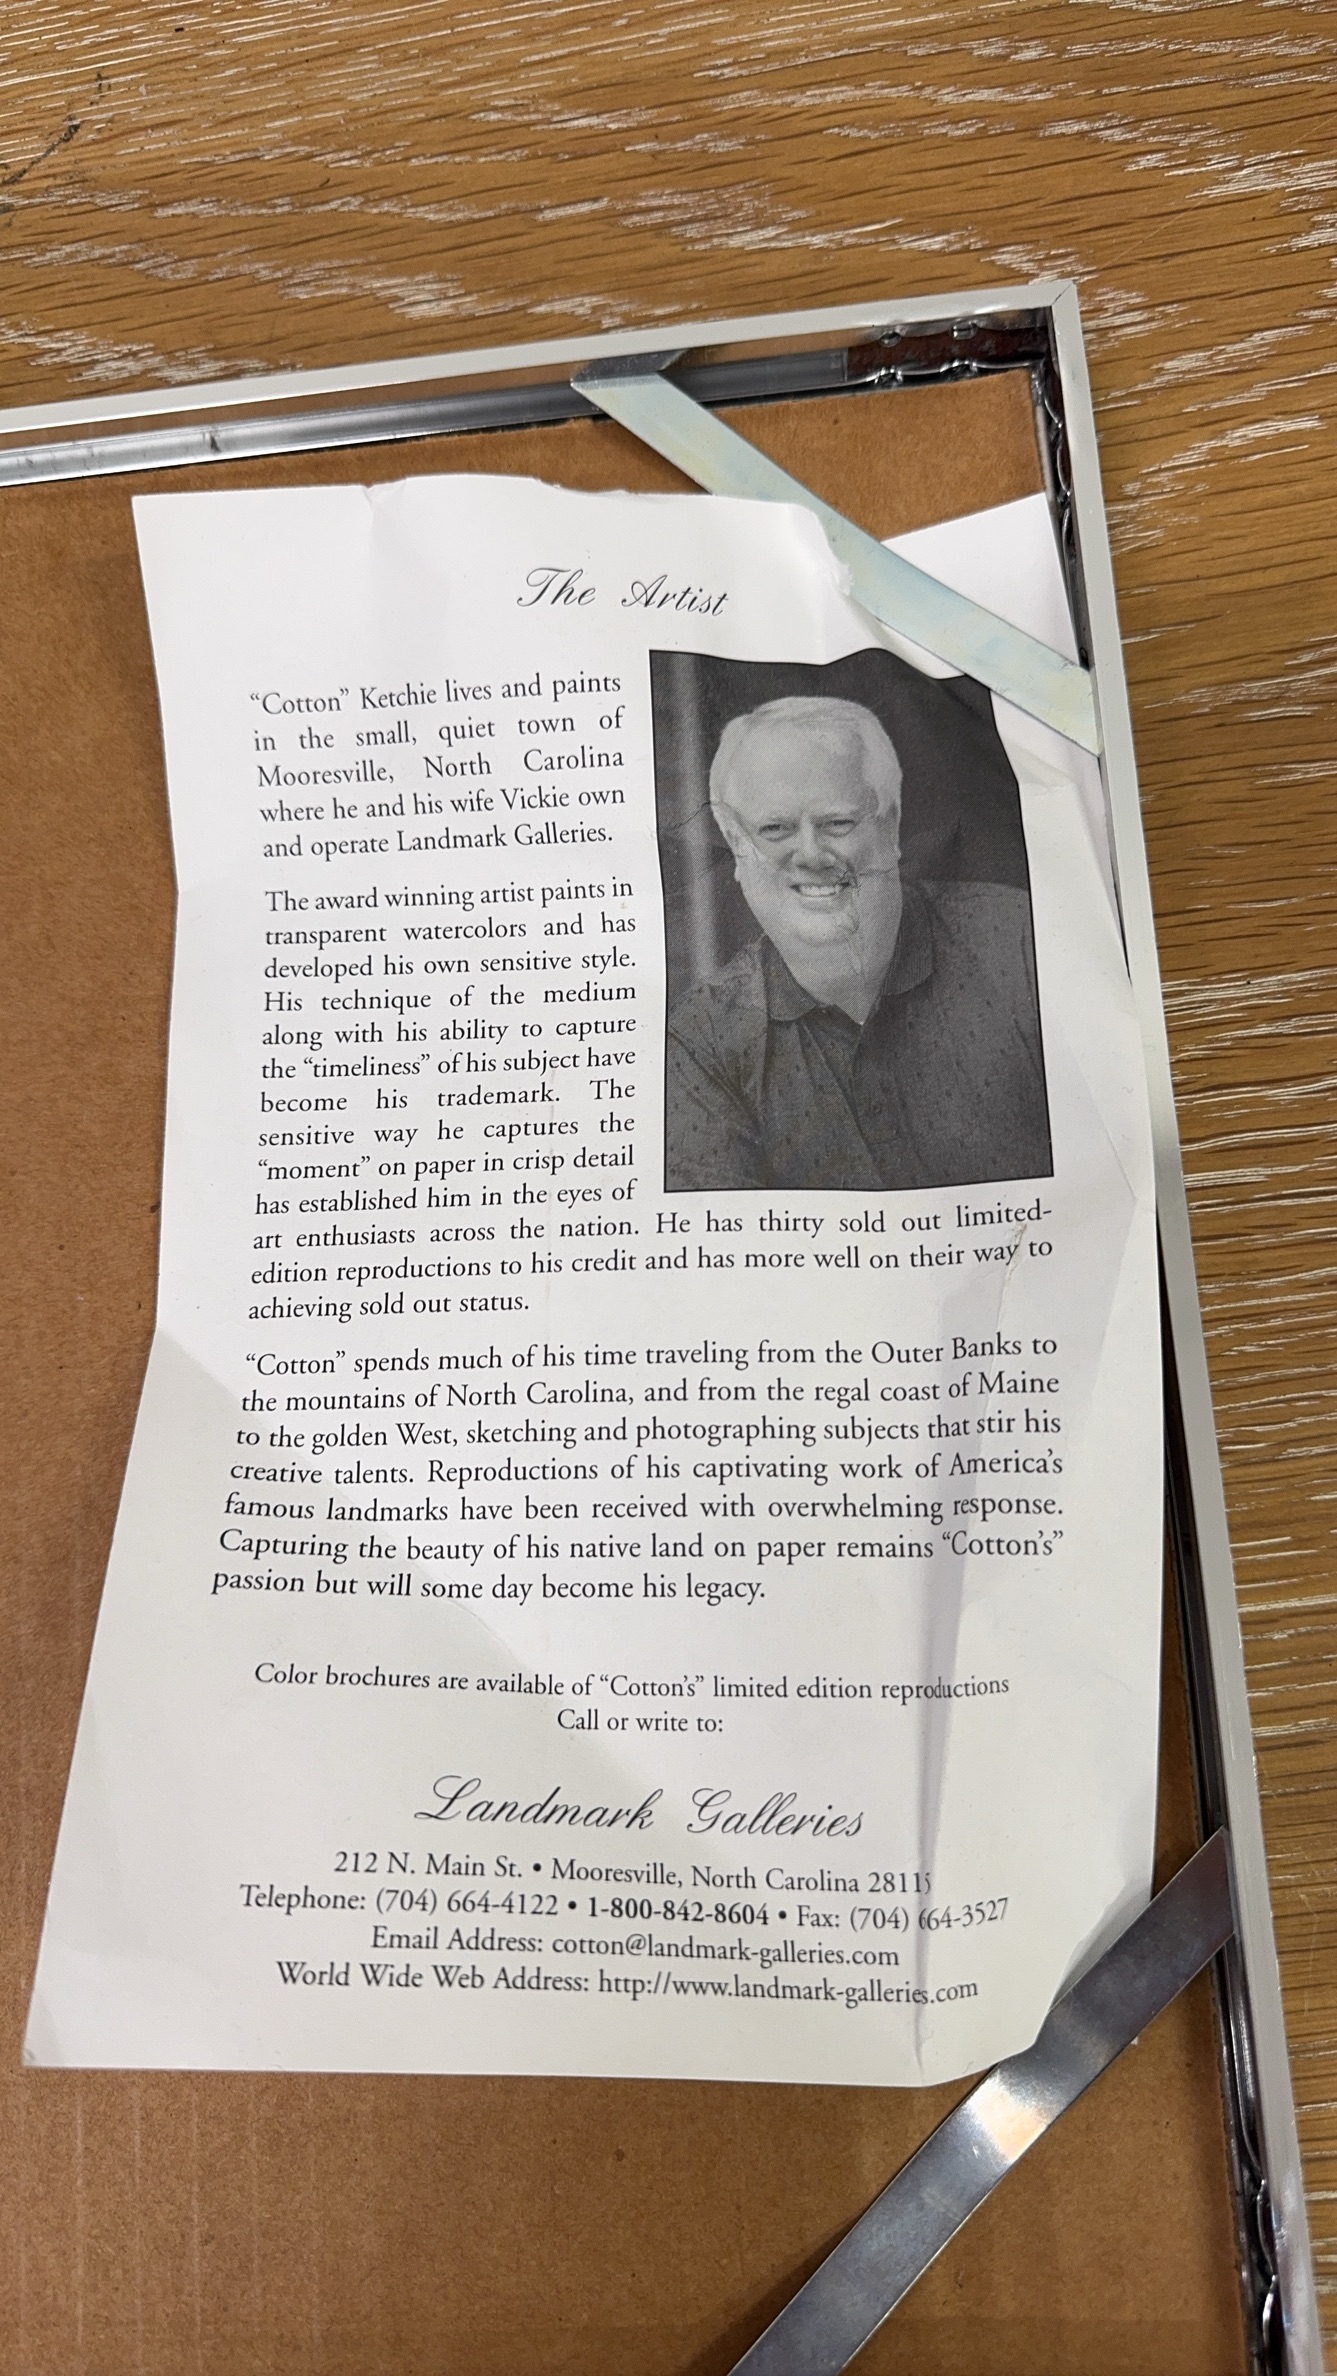 The Artist
“Cotton” Ketchie lives and paints
in the small, quiet town of
Mooresville, North Carolina
where he and his wife Vickie own
and operate Landmark Galleries.
The award winning artist paints in
transparent watercolors and has
developed his own sensitive style.
His technique of the medium
along with his ability to capture
the “timeliness” of his subject have
become his trademark. The
sensitive way he captures the
“moment” on paper in crisp detail
has established him in the eyes of
art enthusiasts across the nation. He has thirty sold out limited-
edition reproductions to his credit and has more well on their way to
achieving sold out status.
“Cotton” spends much of his time traveling from the Outer Banks to
the mountains of North Carolina, and from the regal coast of Maine
to the golden West, sketching and photographing subjects that stir his
creative talents. Reproductions of his captivating work of America’s
famous landmarks have been received with overwhelming response.
Capturing the beauty of his native land on paper remains “Cotton’s”
passion but will some day become his legacy.
Color brochures are available of “Cotton’s” limited edition reproductions
Call or write to:
Landmark Galleries
212 N. Main St. • Mooresville, North Carolina 28115
Telephone: (704) 664-4122 • 1-800-842-8604 • Fax: (704) 664-3527
Email Address: cotton@landmark-galleries.com
World Wide Web Address: http://www.landmark-galleries.com